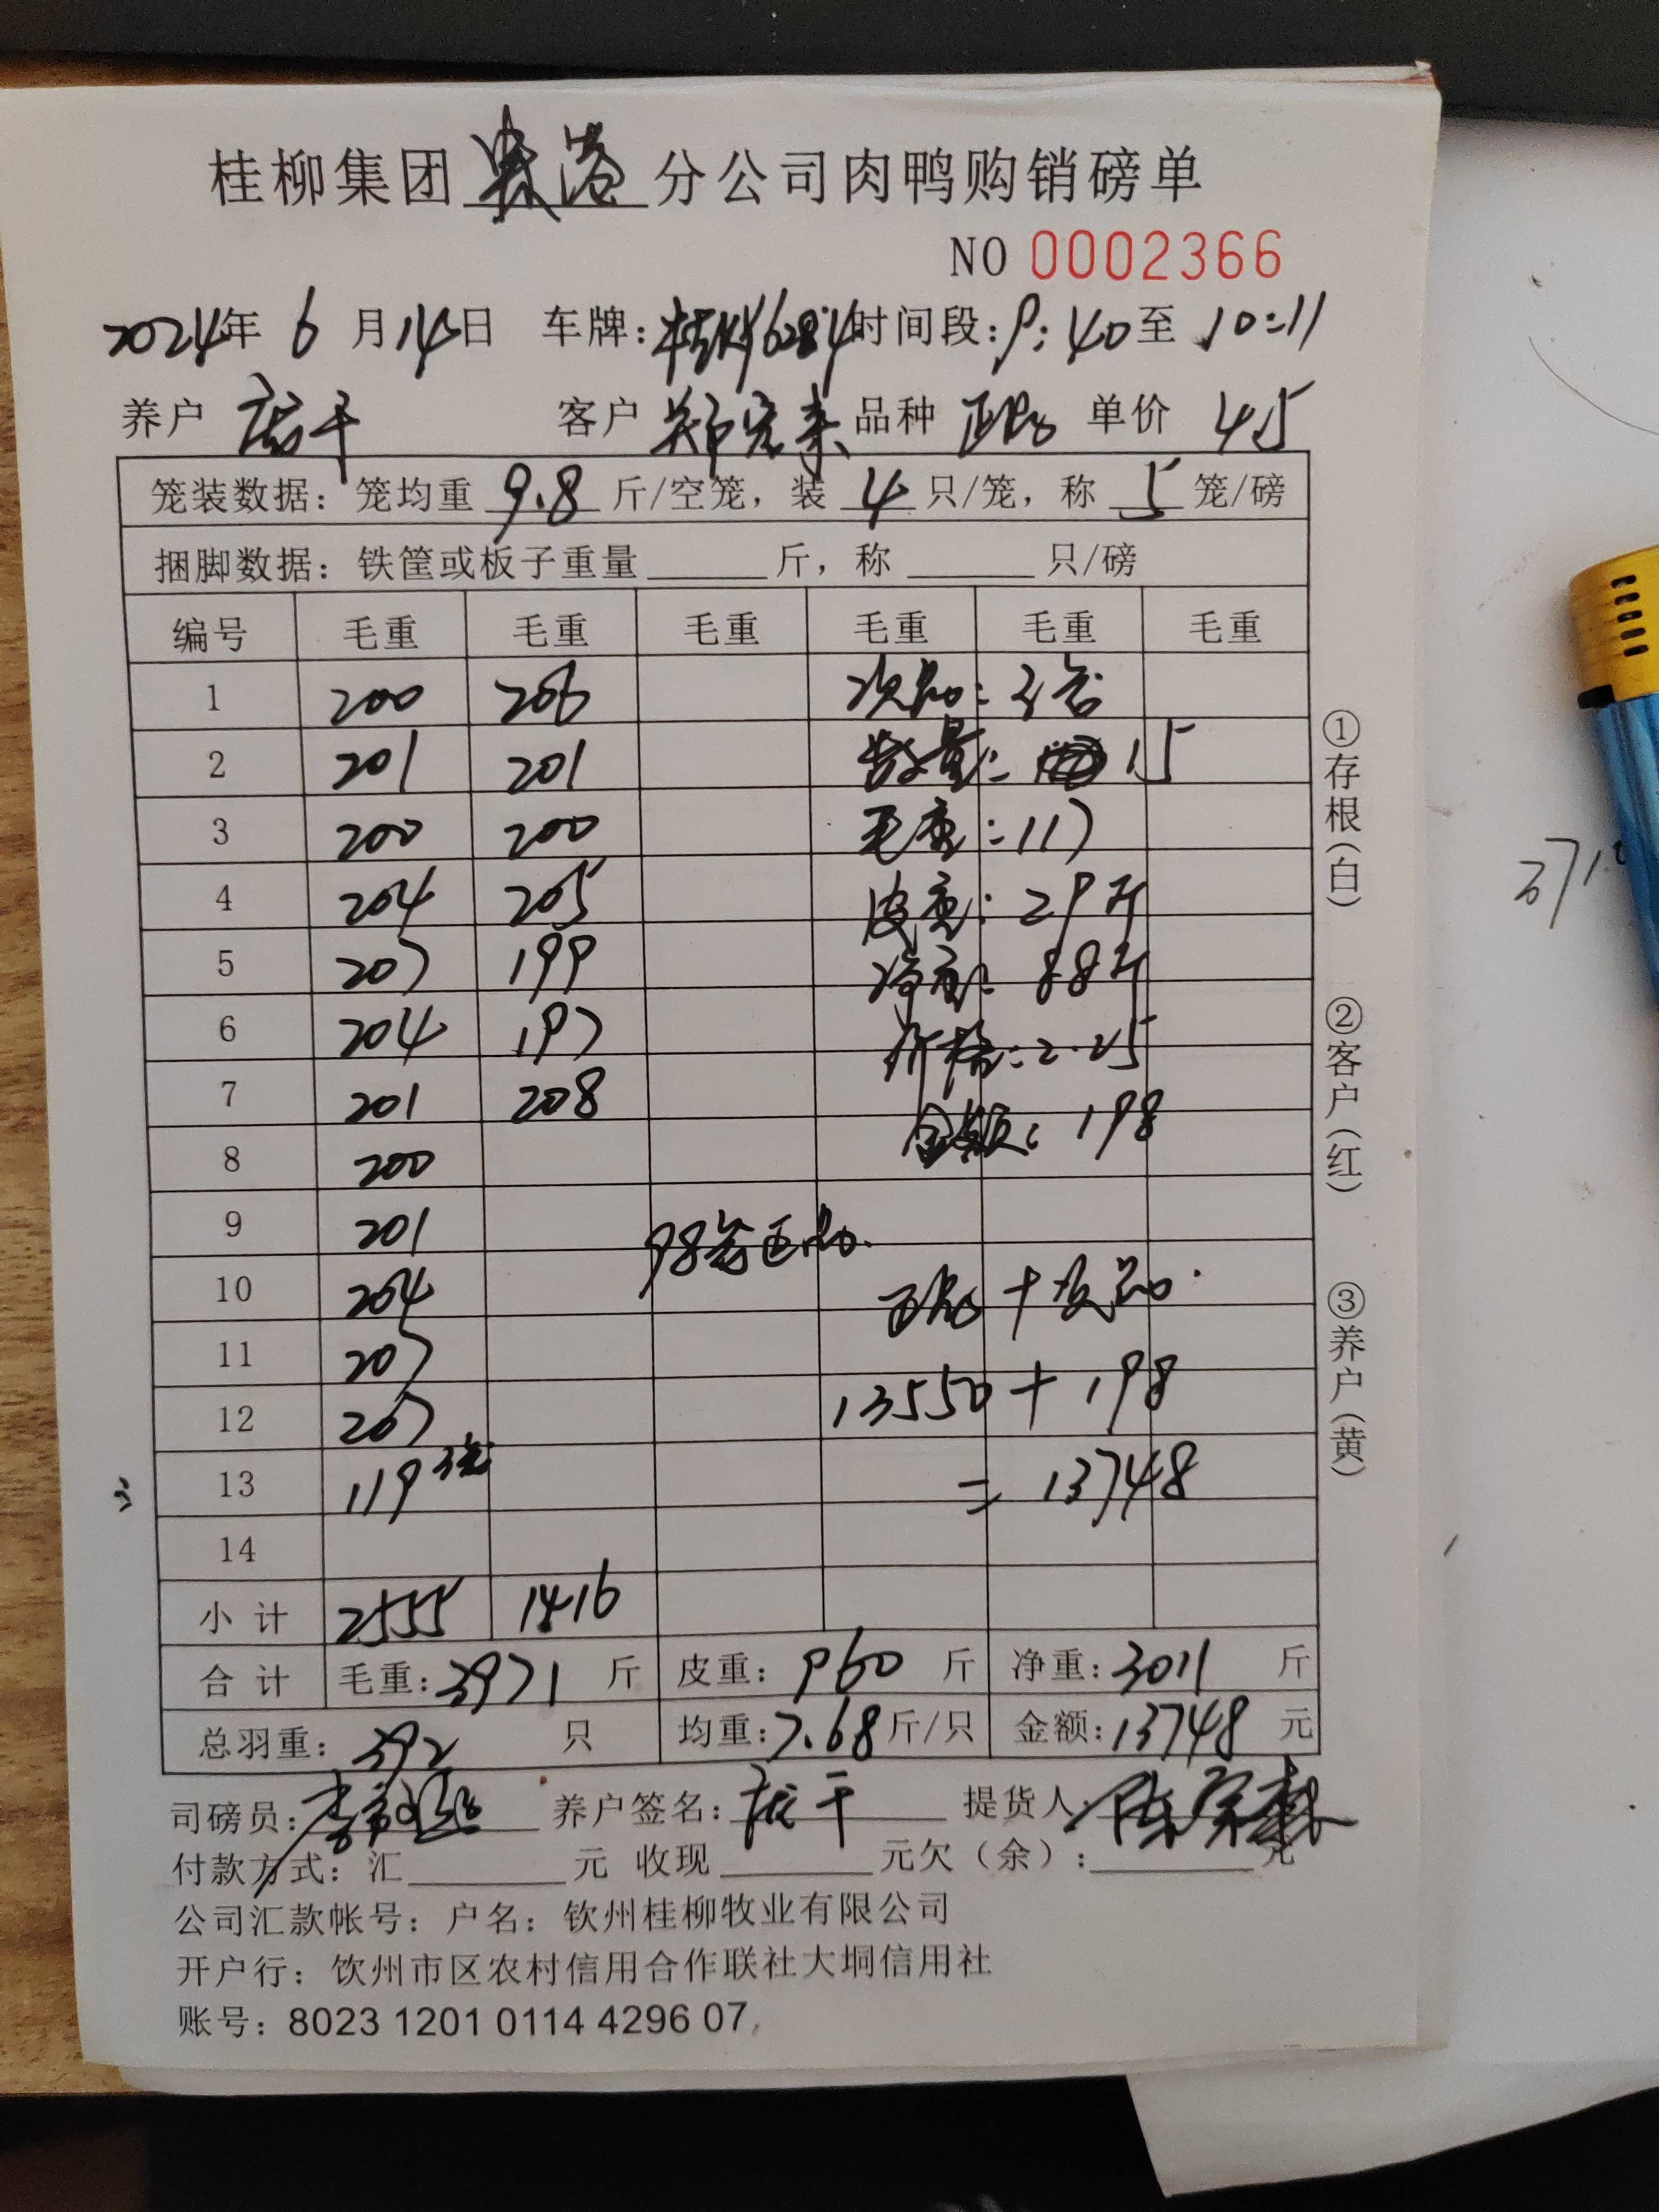 桂柳集团贵港分公司肉鸭购销磅单
NO 0002366
2024年 6 月 14 日 车牌: 时间段: 9:40 至 10:11
养户 客户 郑宏来 品种 正品 单价 4.5
笼装数据: 笼均重 9.8 斤/空笼, 装 4 只/笼, 称 5 笼/磅
捆脚数据: 铁筐或板子重量 斤, 称 只/磅
编号 毛重 毛重 毛重 毛重 毛重 毛重
1 200 206 次品: 3笼
2 201 201 数量: 15
3 200 200 毛重: 117
4 204 205 皮重: 29斤
5 207 199 净重: 88斤
6 204 197 价格: 2.25
7 201 208 金额: 198
8 200
9 201 98笼正品.
10 204 正品 + 次品.
11 207
12 207 13550 + 198
13 119 3笼 = 13748
14
小计 2555 1416
合计 毛重: 3971 斤 皮重: 960 斤 净重: 3011 斤
总羽重: 392 只 均重: 7.68 斤/只 金额: 13748 元
司磅员: 养户签名: 提货人:
付款方式: 汇 元 收现 元欠(余): 元
公司汇款帐号: 户名: 钦州桂柳牧业有限公司
开户行: 饮州市区农村信用合作联社大垌信用社
账号: 8023 1201 0114 4296 07
①存根(白)
②客户(红)
③养户(黄)